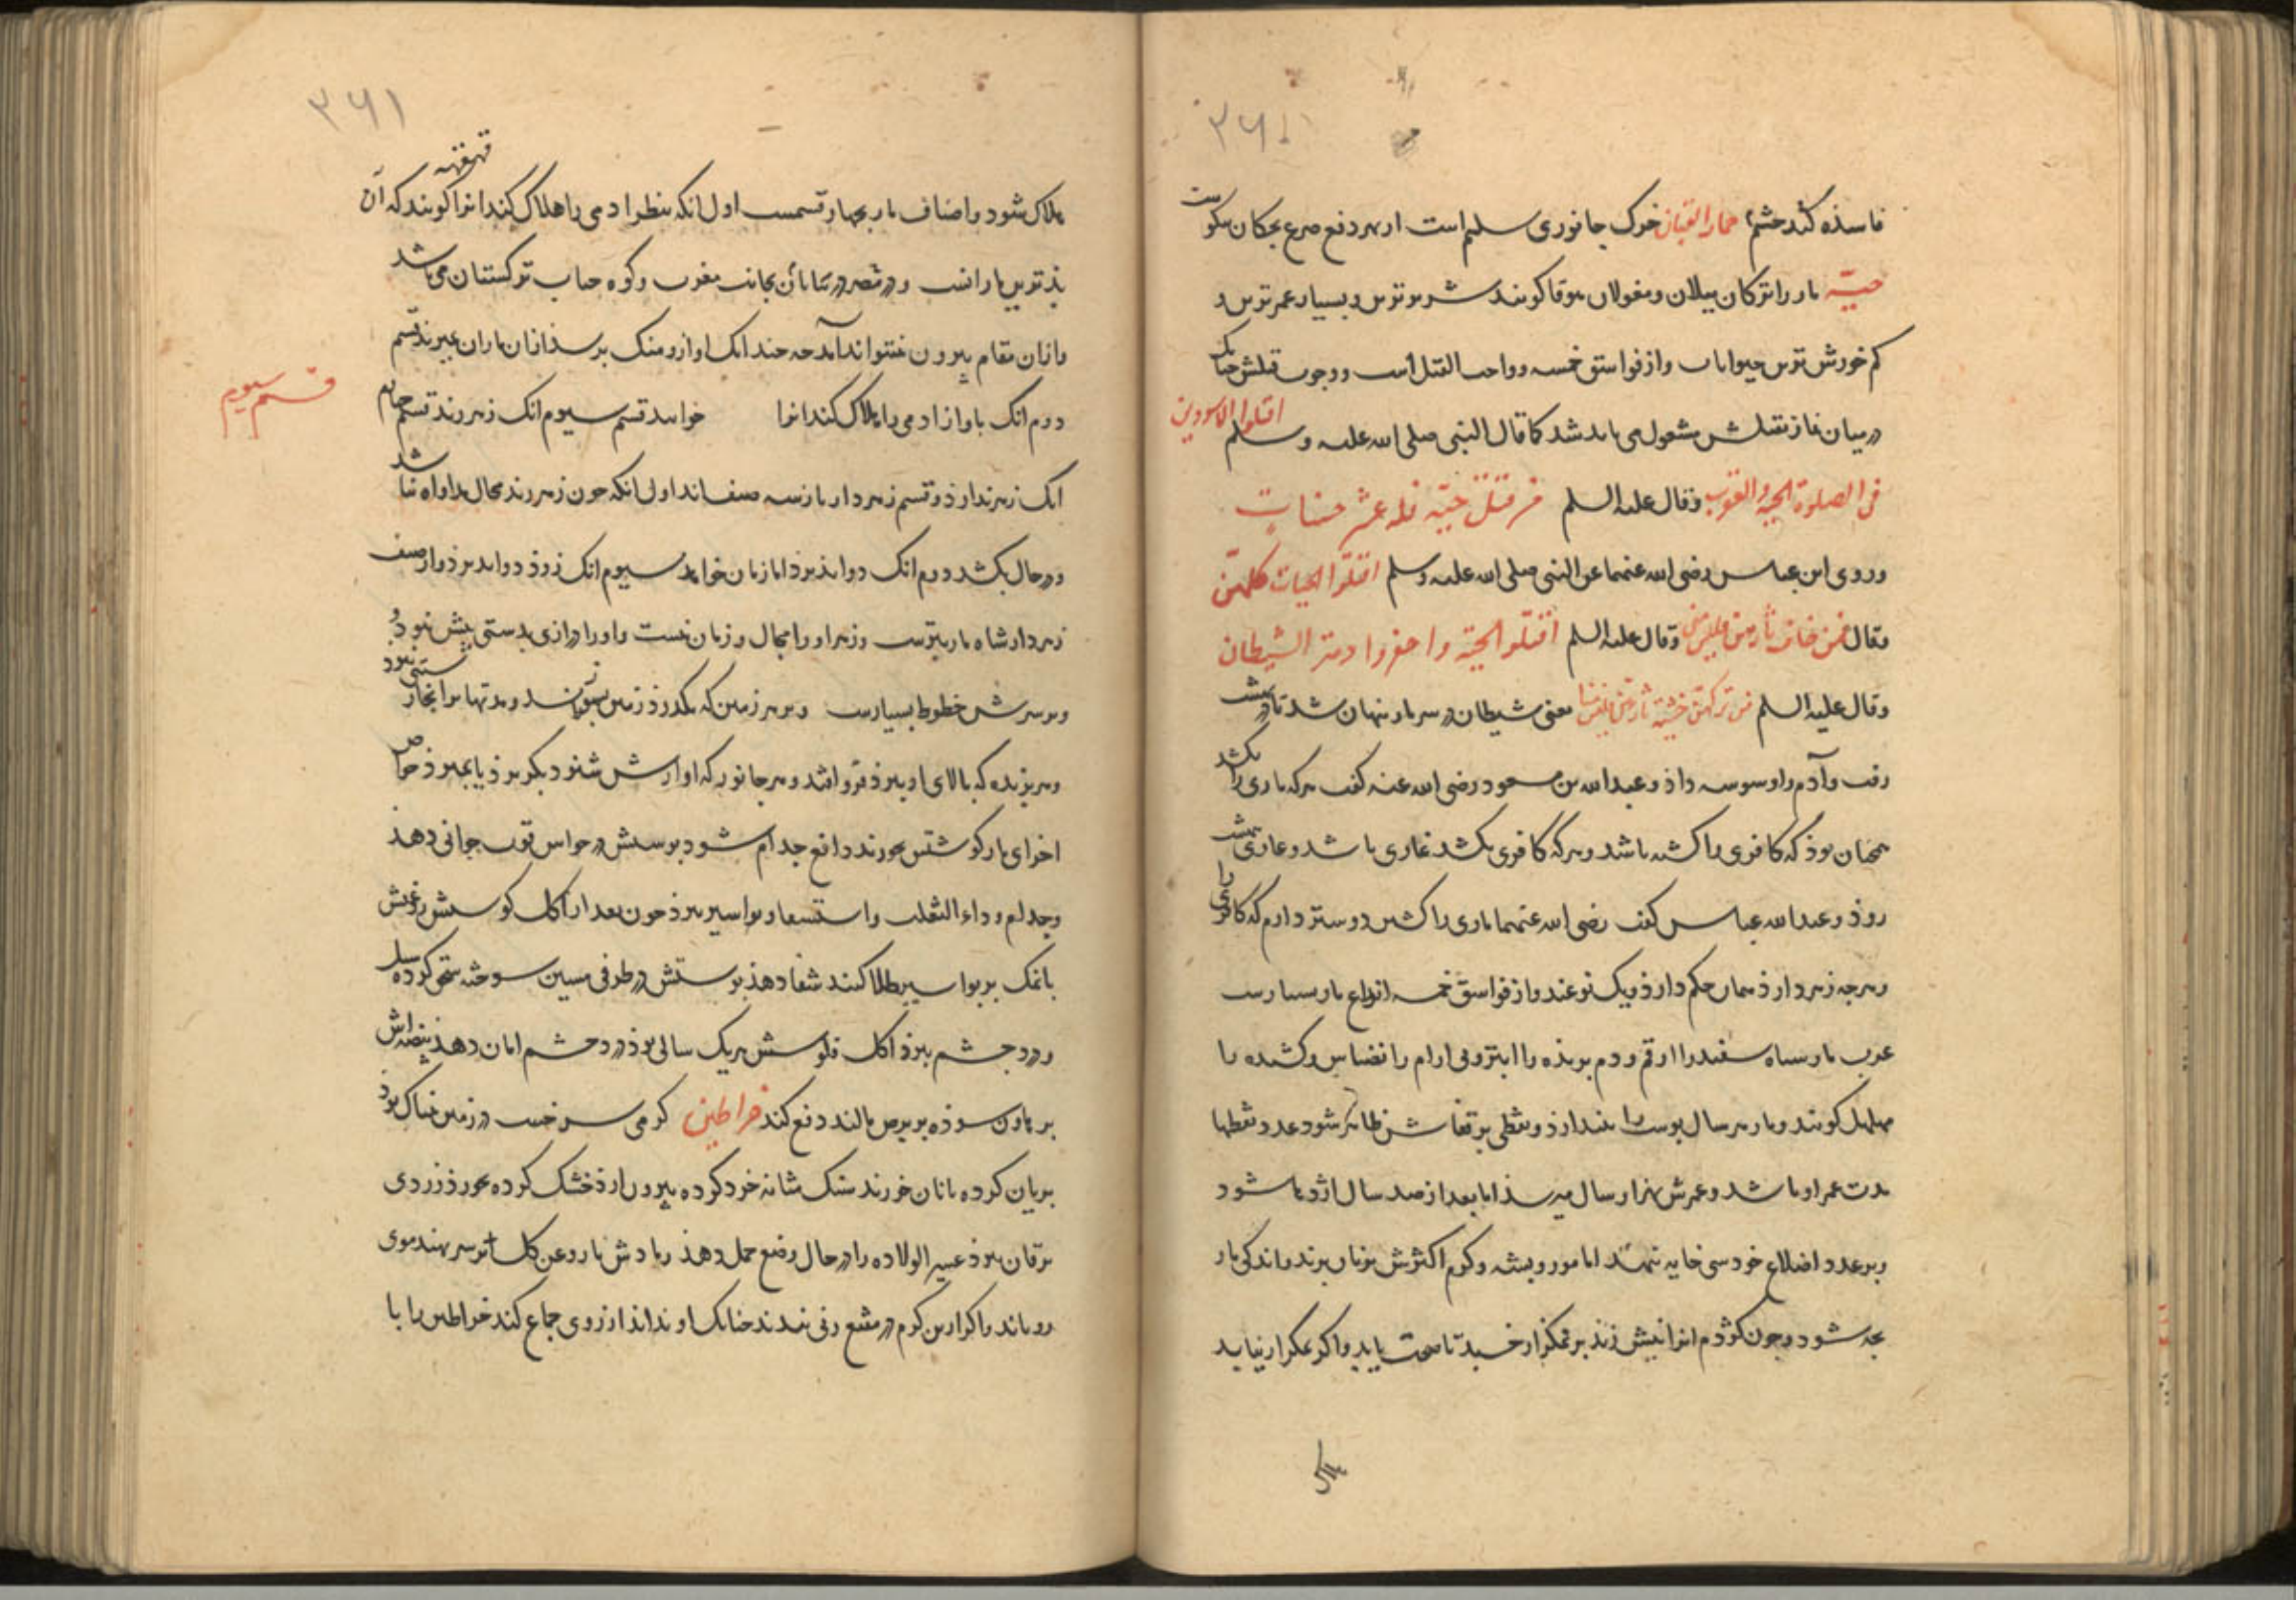 ۳۶۰
فاسده کند چشم حمار القبان خرک جانوری سلیم است از بهر دفع صرع بچکان نیکوست
حیّة مار را ترکان ییلان و مغولان موقا کویند شریرترین و بسیار عمرترین و
کم خورش ترین حیوانات و از فواسق خمسه و واجب القتل است و وجوب قتلش چنانک
در میان نماز بقتلش مشغول می باید شد کما قال النبی صلی الله علیه و سلم اقتلوا الاسودین
فی الصلوة الحیة و العقرب و قال علیه السلم من قتل حیّة فله عشر حسنات
و روی ابن عباس رضی الله عنهما عن النبی صلی الله علیه و سلم اقتلوا الحیات کلهنّ
و قال فمن خاف ثارهن فلیس منی و قال علیه السلم اقتلوا الحیّة و احفروا دمتر الشیطان
و قال علیه السلم من ترکهن خشیة ثارهن فلیس منا یعنی شیطان در سر مار پنهان شد تا در بهشت
رفت و آدم را وسوسه داذ و عبدالله بن مسعود رضی الله عنه کفت هرکه ماری را بکشد
همچنان بوذ که کافری را کشته باشد و هرکه کافری بکشد غازی باشد و غازی بهشت
روذ و عبدالله عباس کفت رضی الله عنهما ماری را کشتن دوستر دارم که کافری را
و هرچه زهر دارذ همان حکم دارذ و یک نوعند و از فواسق خمسه انواع مار بسیارست
عرب مار سیاه سفید را ارقم و دم بریذه را ابتر و بی ارام را نضناض و کشنده را
مهلهل کویند و مار هر سال پوست را بیندازذ و نقطی بر قفاش ظاهر شود عدد نقطها
مدت عمر او باشد و عمرش بهزار سال میرسذ اما بعد از صد سال اژدها شود
و بر عدد اضلاع خود سی خایه نهد اما مور و پشه و کرم اکثرش بزیان برند و اندکی مار
بچه شود و چون کژدم انرا نیش زند بر نمکزار خسبد تا صحت یابد و اکر نمکزار نیابد
هلاک
۳۶۱
هلاک شود و اصناف مار بچهار قسمست اول انکه بنظر ادمی را هلاک کند انرا کویند که آن
قهقهه
بذترین مارانست و در مصر در بیابان بجانب مغرب و کوه جناب ترکستان می باشد
و ازان مقام بیرون نتواند آمد چه چندانک اواز و منک برسذ ازان ماران بمیرند قسم
دوم انک باواز ادمی را هلاک کند انرا خوانند قسم سیوم انک زهر زند قسم چهارم
قسم سیوم
انک زهر ندارذ و قسم زهر دار باز سه صنف اند اول انکه چون زهر زند مجال مداواه نباشد
و در حال بکشد دوم انک دوا پذیرذ اما زمان خواهد سیوم انک زوذ دوا پذیرذ و از صنف
زهردار شاه مار بترست و زهر او را مجال و زمان نیست و او را درازی بدستی بیش نبود و
و بر سرش خطوط بسیارست و بر هر زمین که بکذرذ زمین بسوزاند و مدتها بر انجا رستنی نبود
و هر پرنده که بالای او بپرذ فرو افتد و هر جانور که اوازش شنود بکریزذ یا بمیرذ خواص
اجزای مار کوشتش بخورند دافع جدام شود بوستش در حواس قوت جوانی دهذ
و جدام و داء الثعلب و استسقا و بواسیر ببرذ خون بعد از اکل کوستش روغنش
با نمک بر بواسیر طلا کنند شفا دهذ پوستش در ظرفی مسین سوخته سحق کرده سبل
و درد چشم ببرذ اکل قلوبش هر یک سالی بوذ درد چشم امان دهذ بیضه اش
بر هاون سوذه بر برص مالند دفع کند خراطین کرمی سرخست در زمین نمناک بوذ
بریان کرده با نان خورند سنک مثانه خرد کرده بیرون ارذ خشک کرده بخورذ زردی
یرقان ببرذ عسیر الولاده را در حال وضع حمل دهذ رمادش با روغن کل بر سر نهند موی
رویاند و اکر ازین کرم در مقنع زنی بندند چنانک او نداند ارزوی جماع کند خراطین را با